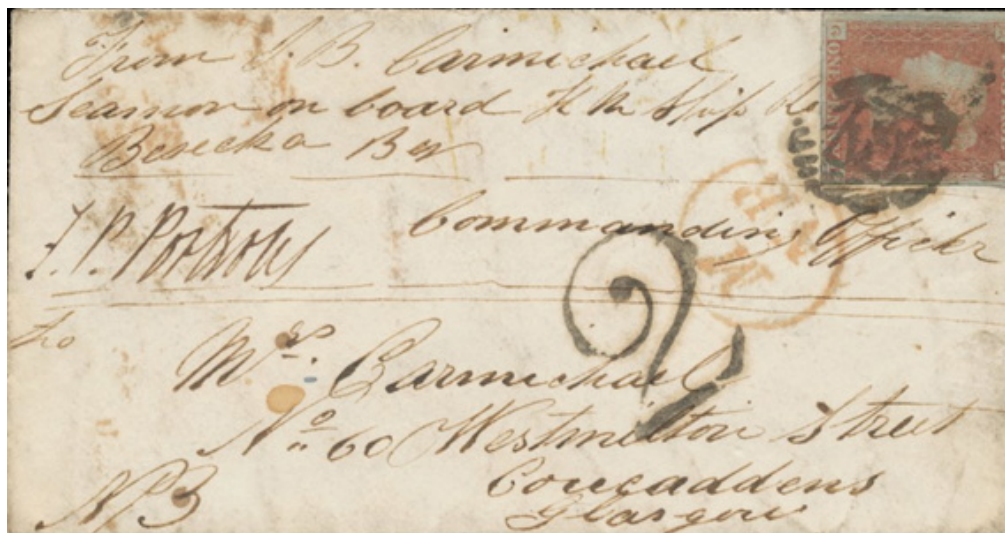 From J. B. Carmichael
Seamon on board H M Ship
Besecka Bay
Commanding Officer
To
Mrs. Carmichael
No 60 Westmilton Street
Coucaddens
Glasgow
NB
2